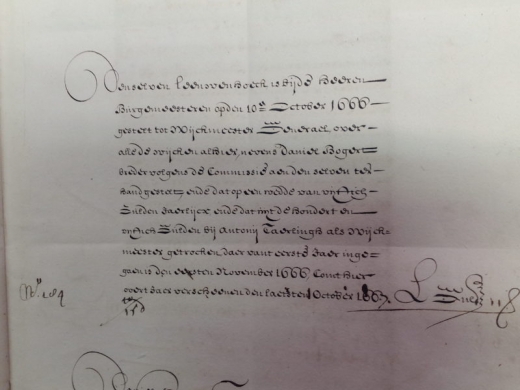 Denselven Leeuwenhoeck is bijde Heeren
Burgemeesteren opden 10e October 1666
gestelt tot Wijckmeester Generael, over
alle de wijcken alhier, nevens Daniel Bogert
breder volgens de Commissie aenden selven ter
hand gestelt ende dat op een wedde van vijftich
Gulden Jaerlijcx ende dat uijt de hondert en
vijftich Gulden bij Antonij Taerlingh als Wijck-
meester getrocken, daer vant eerste Jaer inge-
gaen is den eersten November 1666 Comt hier
over t Jaer verscheenen den laesten October 1667.
No 184